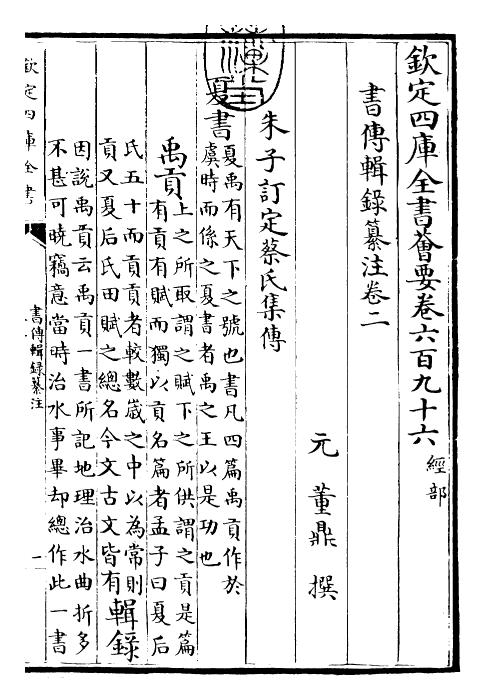 欽定四庫全書薈要卷六百九十六 經部
書傳輯錄纂注卷二
元 董鼎 撰
朱子訂定蔡氏集傳
夏書
夏禹有天下之號也書凡四篇禹貢作於
虞時而係之夏書者禹之王以是功也
禹貢
上之所取謂之賦下之所供謂之貢是篇
有貢有賦而獨以貢名篇者孟子曰夏后
氏五十而貢貢者較數嵗之中以為常則
貢又夏后氏田賦之總名今文古文皆有
輯錄
因說禹貢云禹貢一書所記地理治水曲折多
不甚可曉竊意當時治水事畢却總作此一書
欽定四庫全書
書傳輯錄纂注
一